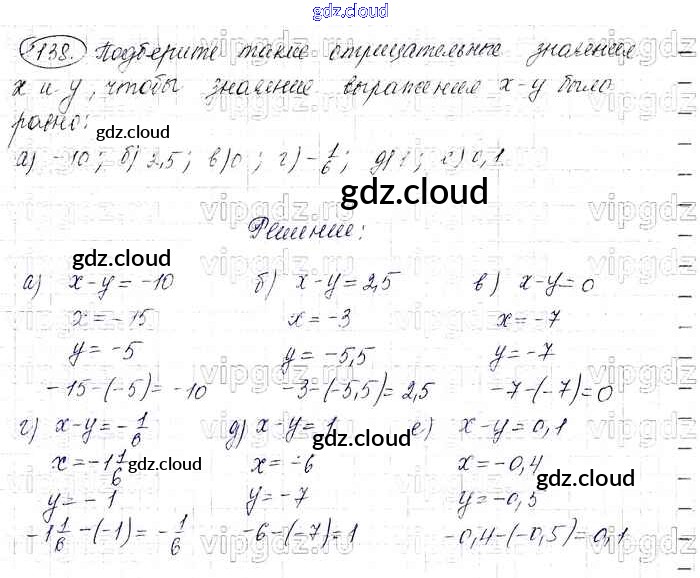 gdz.cloud
1138. Подберите такие отрицательные значения
x и y, чтобы значение выражения x-y было
равно:
gdz.cloud
а) -10; б) 2,5; в) 0; г) -1/6; д) 1; е) 0,1
gdz.cloud
vipgdz.ru
Решение:
gdz.cloud
а) x-y = -10 б) x-y = 2,5 в) x-y = 0
x = -15 x = -3 x = -7
gdz.cloud gdz.cloud
y = -5 y = -5,5 y = -7
-15-(-5) = -10 -3-(-5,5) = 2,5 -7-(-7) = 0
г) x-y = -1/6 д) x-y = 1 е) x-y = 0,1
gdz.cloud
x = -1 1/6 x = -6 x = -0,4
gdz.cloud gdz.cloud
y = -1 y = -7 y = -0,5
-1 1/6 -(-1) = -1/6 -6-(-7) = 1 -0,4-(-0,5) = 0,1